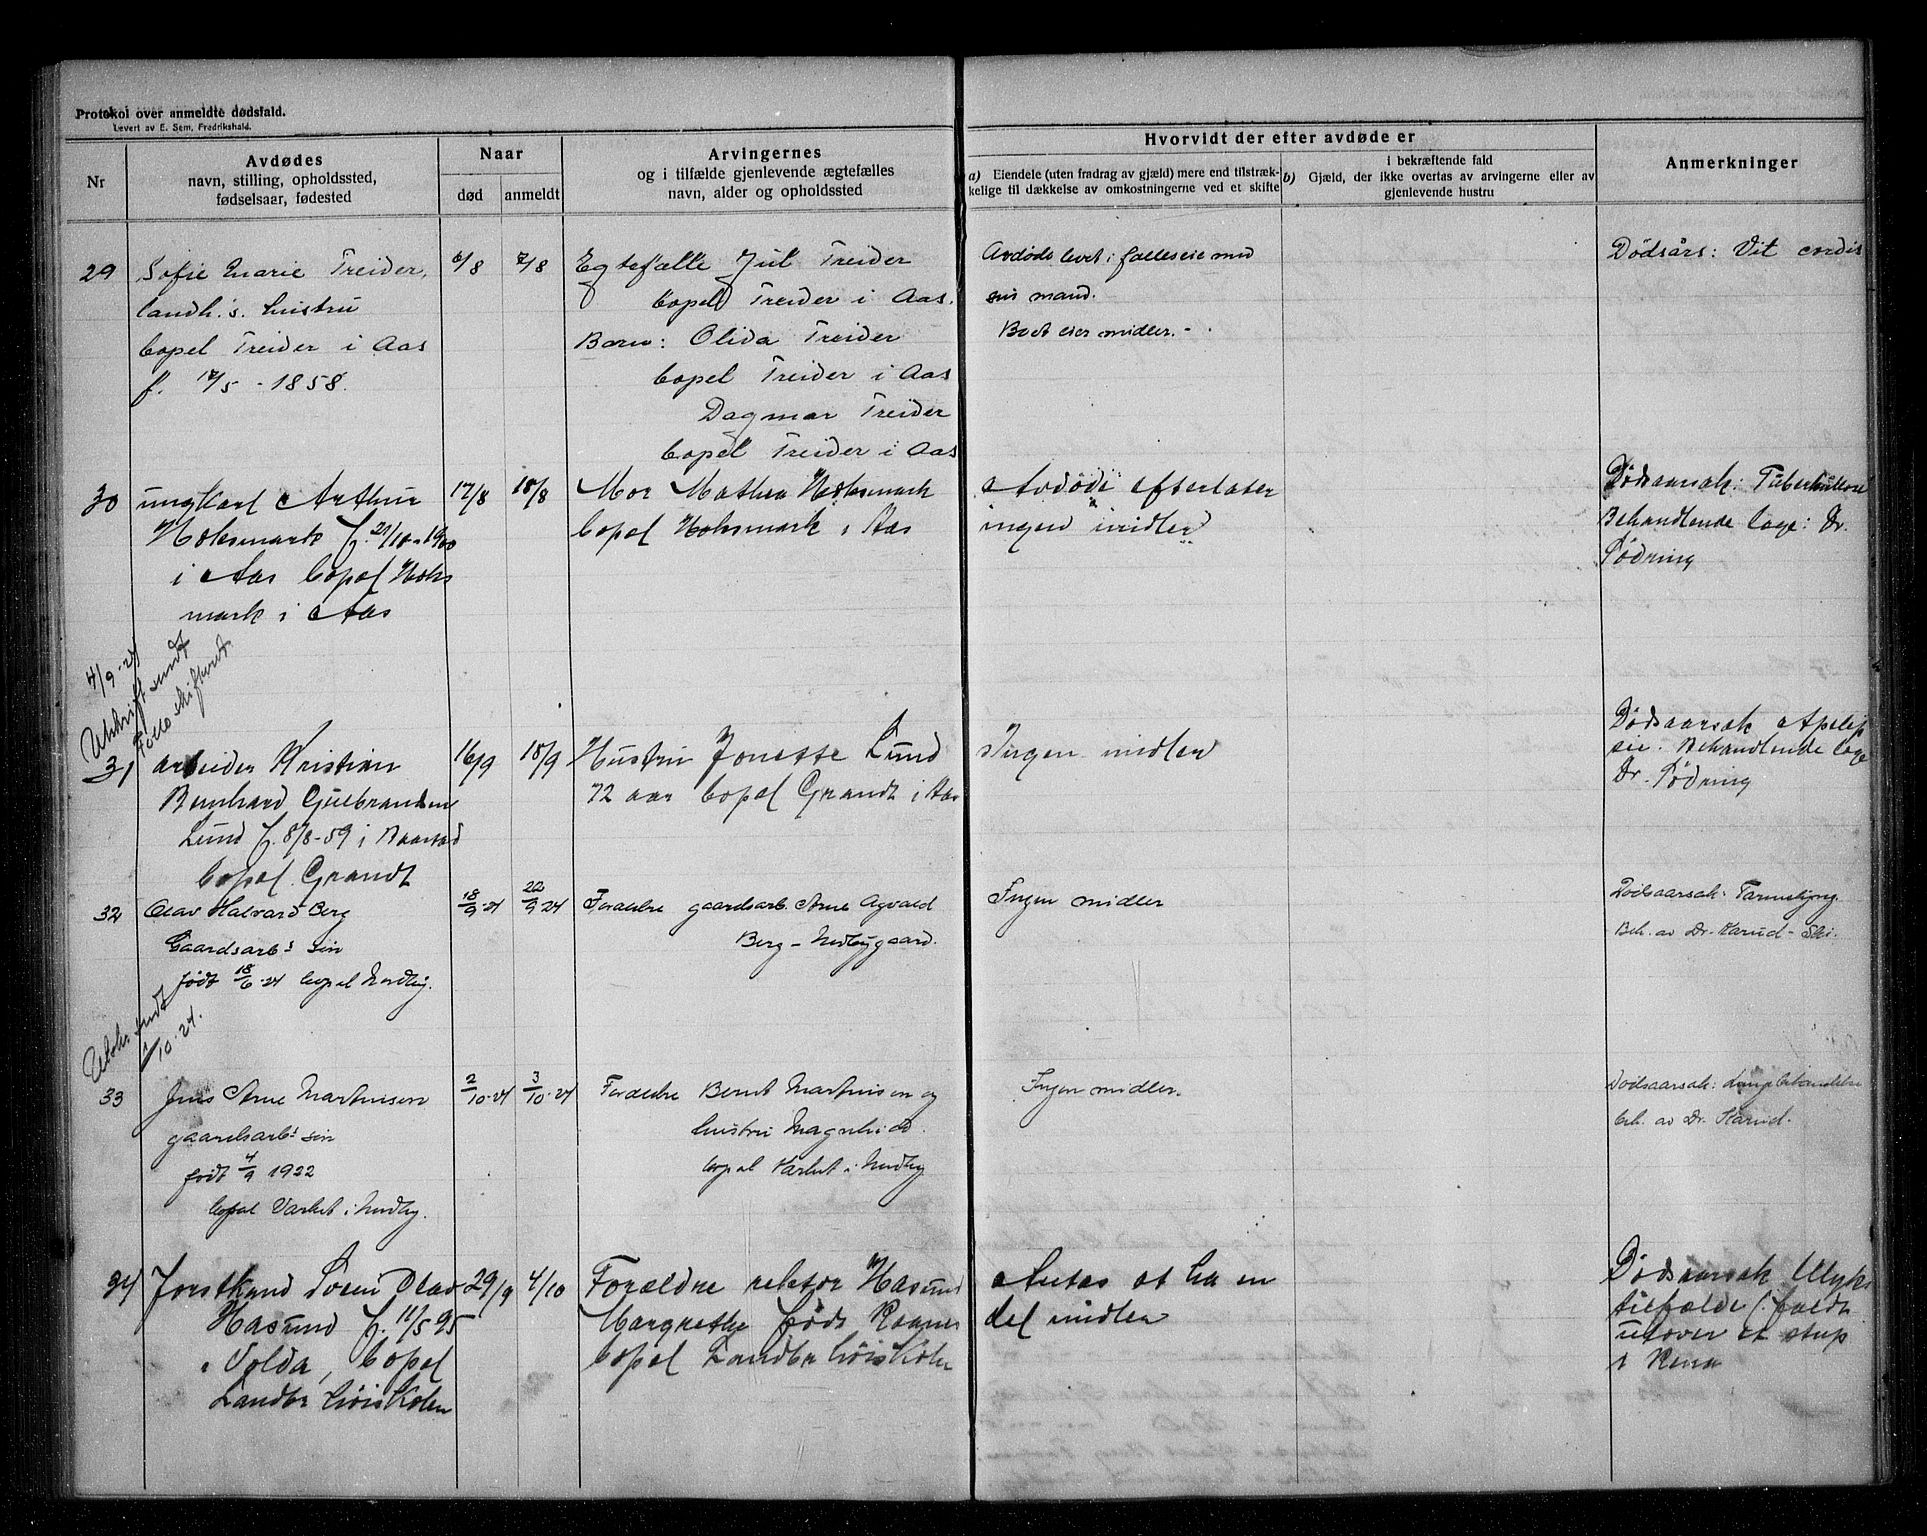 Protokol over anmeldte dødsfald.
Levert av E. Sem, Fredrikshald.
Nr
Avdødes
navn, stilling, opholdssted,
fødselsaar, fødested
Naar
død
anmeldt
Arvingernes
og i tilfælde gjenlevende ægtefælles
navn, alder og opholdssted
Hvorvidt der efter avdøde er
a) Eiendele (uten fradrag av gjæld) mere end tilstræk-
kelige til dækkelse av omkostningerne ved et skifte
i bekræftende fald
b) Gjæld, der ikke overtas av arvingerne eller av
gjenlevende hustru
Anmerkninger
29
Sofie Marie Treider,
landh.s. hustru
bopel Treider i Aas
f. 12/5 - 1858.
6/8
7/8
Egtefælle Jul Treider
bopel Treider i Aas.
Barn: Olida Treider
bopel Treider i Aas
Dagmar Treider
bopel Treider i Aas
Avdøde levet i fælleseie med
sin mand.
Boet eier midler. -
Dødsårs: Vit. cordis
30
ungkarl Arthur
Holsmark f. 21/10-1900
i Aas bopel Hols
mark i Aas
17/8
18/8
Mor Mathea Holsmark
bopel Holsmark i Aas
Avdøde efterlater
ingen midler
Dødsaarsak: Tuberkulose
Behandlende læge: Dr.
Tødring
4/9-24
Utskrift sendt
Follo skifterett
31
arbeider Kristian
Bernhard Gulbrandsen
Lund f. 8/8-59 i Kaarstad
bopel Grandt
16/9
18/9
Hustru Jonette Lund
72 aar bopel Grandt i Aas
Ingen midler
Dødsaarsak Apelep
sie. Behandlende læge
Dr. Tødring
32
Olav Halvard Berg
Gaardsarb.s søn
født 18/6-24 bopel Nordby.
18/9-24
22/9-24
Foreldre gaardsarb. Arne Agvald
Berg - Nordbygaard.
Ingen midler
Dødsaarsak: Tarmslyng.
Beh. av Dr. Harud - Ski.
Utskr. sendt
1/10-24.
33
Jens Arne Martinsen
gaardsarb.s søn
født 4/9 1922
bopel Varlet i Nordby.
2/10-24
3/10-24
Foreldre Bernt Martinsen og
hustru Magnhild.
bopel Varlet i Nordby
Ingen midler.
Dødsaarsak: Lungebetændelse
beh. av Dr. Harud.
34
Forstkand Søren Olav
Hasund f. 11/5 95
i Volda, bopel
Landbr høiskolen
29/9
4/10
Forældre rektor Hasund
Margrethe fødd
bopel Landbr høiskolen
Antas at ha en
del midler
Dødsaarsak Ulyks
tilfælde (faldt
utover et stup
i Rena